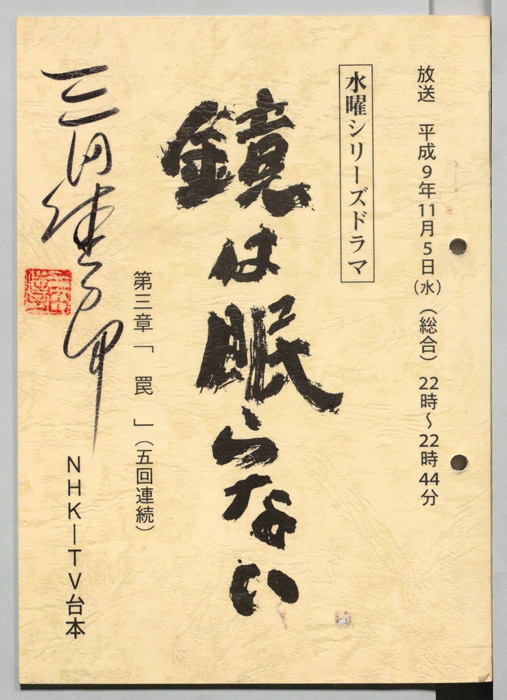 放送　平成9年11月5日(水)(総合)22時～22時44分
水曜シリーズドラマ
鏡は眠らない
第三章「罠」(五回連続)
三田佳子
NHK―TV台本